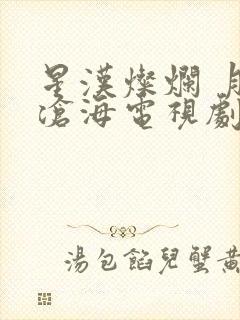 星漢燦爛 月
滄海電視劇
湯包餡兒蟹黃